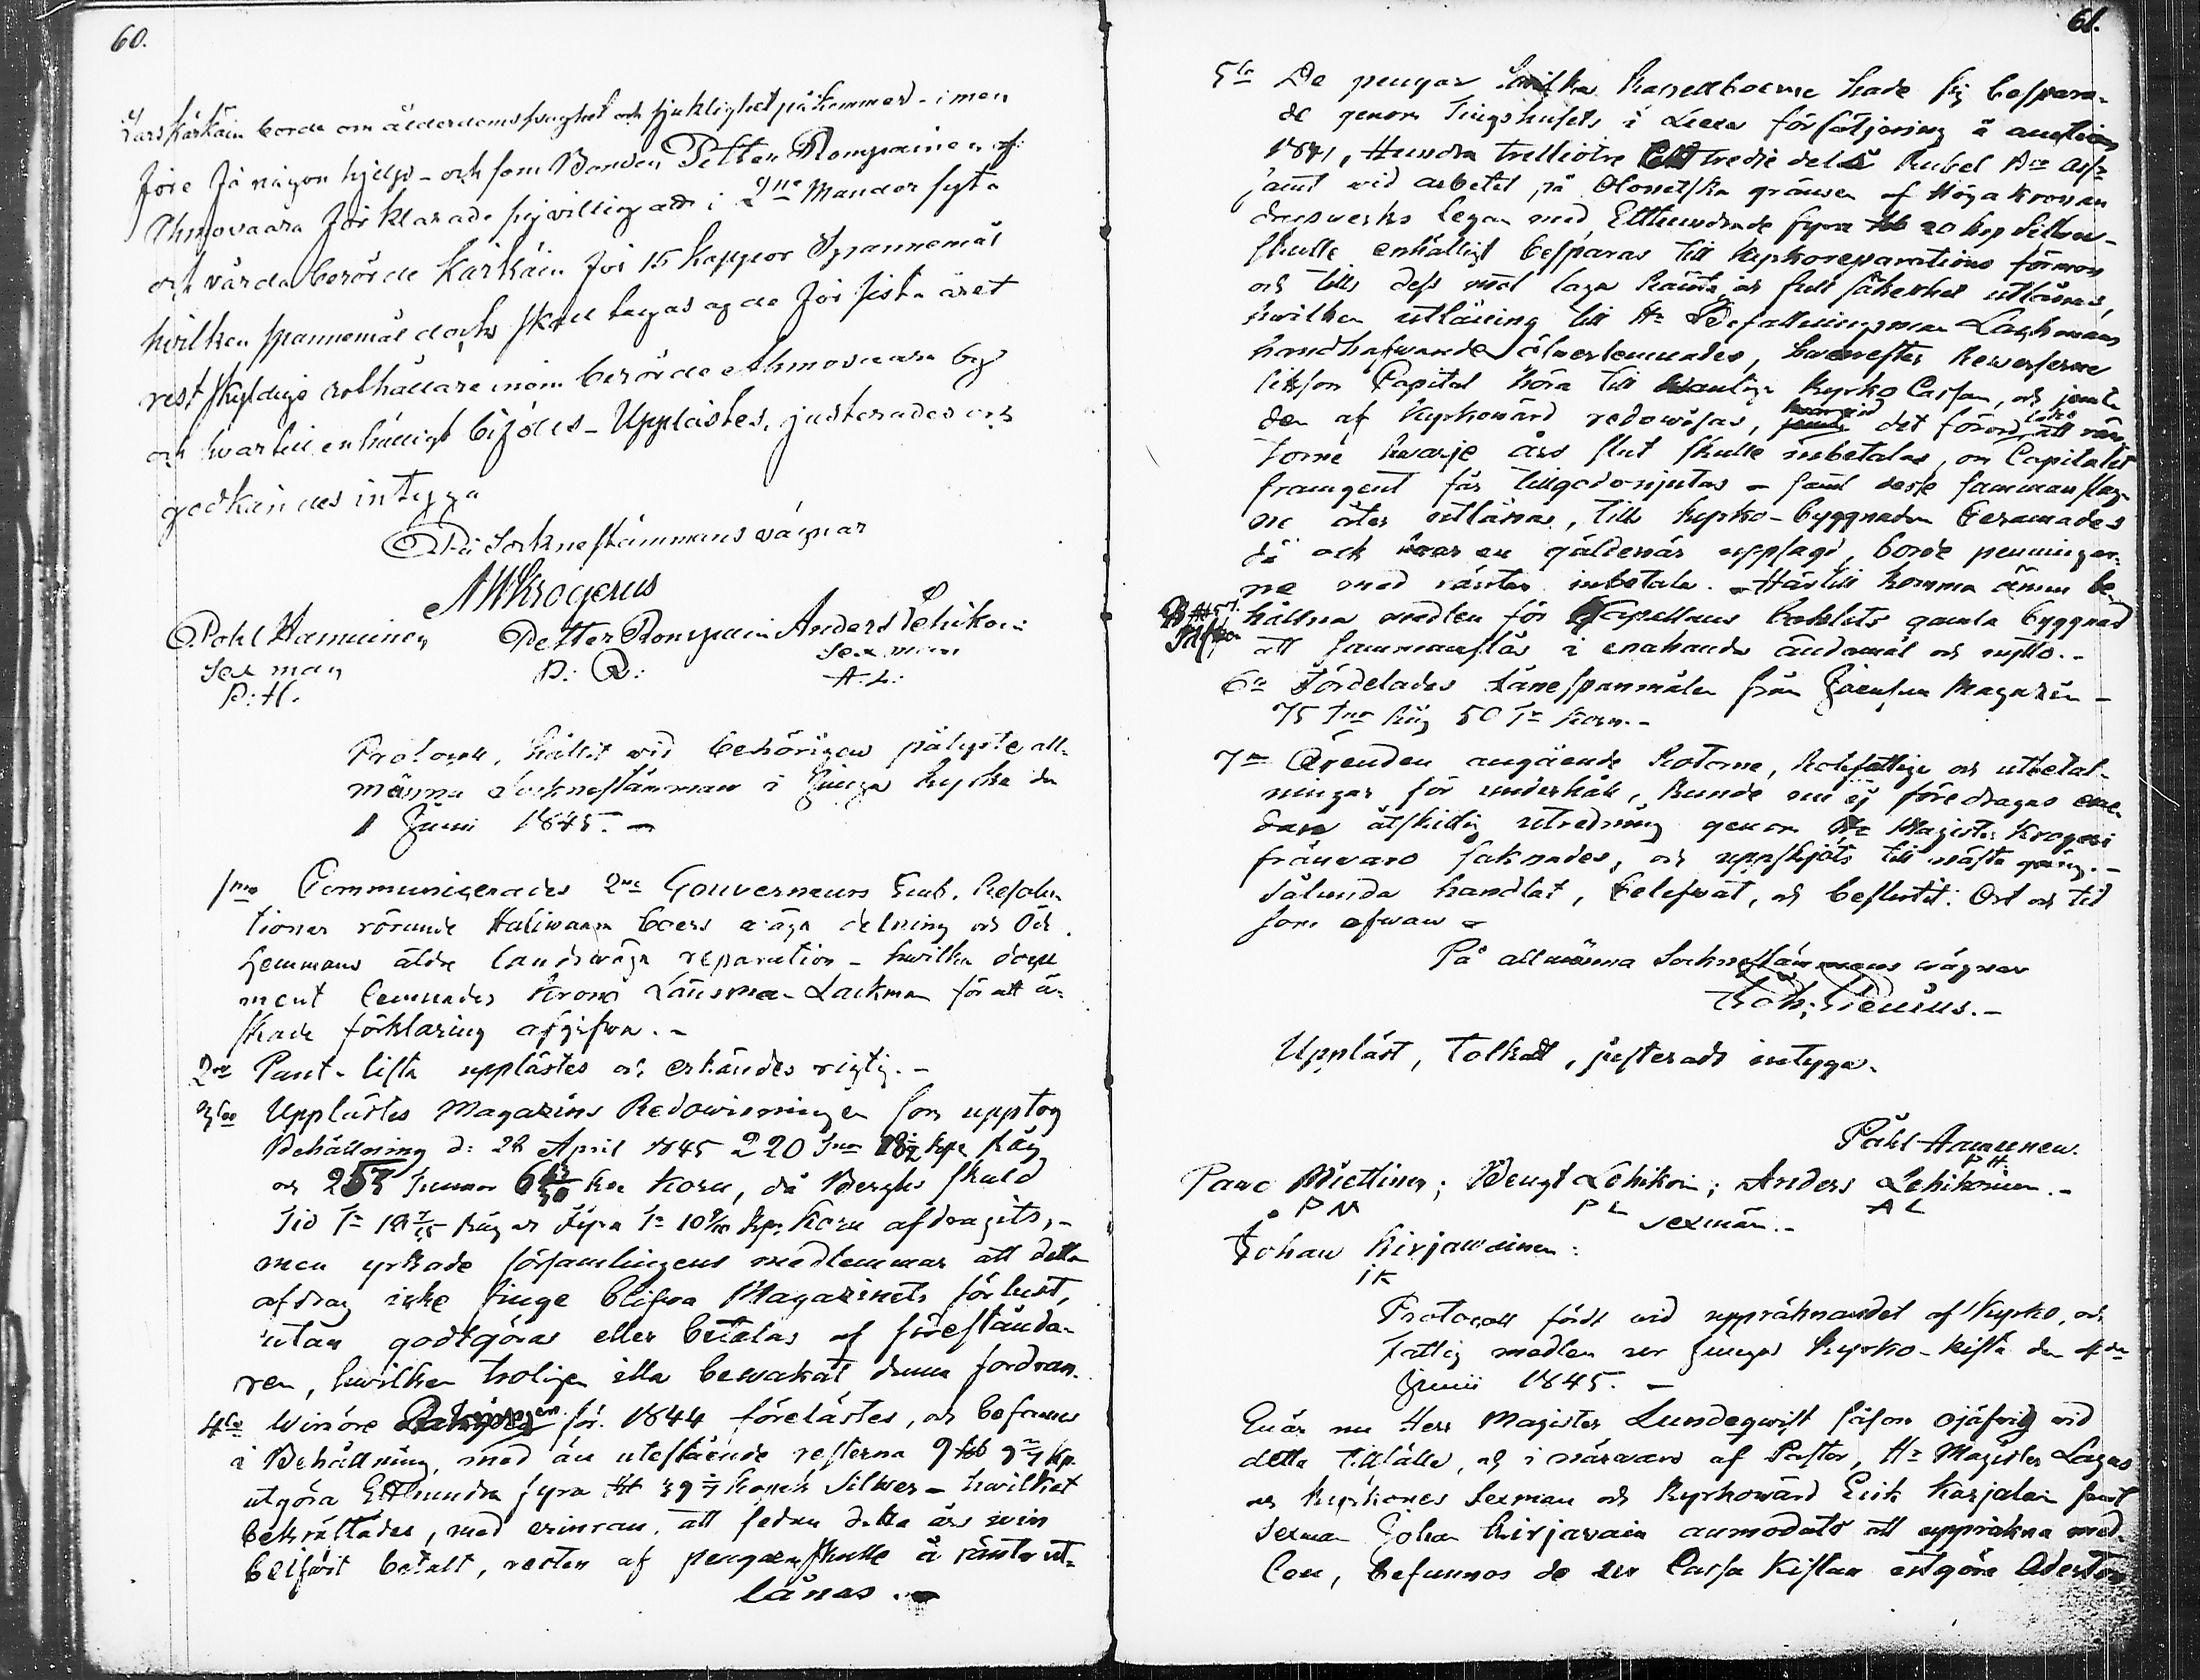 60.
Lars Kärkäin borde om ålderdomssvaghet och sjuklighet påkommer - i mon
före få någon hjelp - och som Bonden Petter Rompainen af
Ahmovaara förklarade sig villig att i 2ne Månader sysla
och vårda berörde Kärkäin för 15 kappor Spannemål
hvilken spannemål dock skall tagas af de för sista året
restskyldige rothållare inom berörde Ahmovaara by
och hvartill enhälligt bifölls - Upplästes, justerades och
godkändes intyga
På Sockne stämmans vägnar
N W Krogerus
Påhl Hamuinen Petter Rompain Anders Lehikoin
Sex man P: R: Sex man
P: H. A: L:
Protocoll, hållit vid behörigen pålyste all-
männa Socknestämman i Juuga kyrka den
1 Junii 1845. -
1mo Communicerades 2ne Gouverneurs Emb. Resolu
tioner rörande Haliwaara boers wäga delning och
hemmans äldre landsväga reparation - hwilka docu
ment lemnades Krono Länsman Lackman för att ä-
skade förklaring afgifva. -
2do Pant-lista upplästes och erkändes rigtig. -
3tio Upplästes Magazins Redowisningen som upptog
Behållning d: 28 April 1845 220 Tnr 18½ kpr Råg
och 253 Tunnor kpr Korn, då Berghs skuld
Tio Tr Råg och Fyra Tr 10 kpr Korn afdragits, -
men yrkade församlingens medlemmar att detta
afdrag icke finge blifva Magazinets förlust,
utan godtgöras eller betalas af föreståndа-
ren, hwilken troligen illa bewakat denna fordran.
4to Winöre Räkningen för 1844 förelästes, och befanns
i Behållning, med än utestående resterna 9 kp.
utgöra Etthundra fyra 39 Kopek Silfwer - hwilket
bekräftades, med erinran, att sedan detta års win
blifwit betalt, resten af pengarne skulle å ränta ut-
lånas. -
61.
5to De pengar hwilka hade sig bespara-
de genom Tingshusets i försäljning å auction
1841, Hundra trettiotre Ett tredje dels Rubel Bco Ass
samt wid arbetet på Olonetska gränsen af Höga Kronan
med Etthundrade fyra 20 kop Silfwer -
skulle enhälligt besparas till Kyrkoreparations
och tills dess mot laga Ränta och full säkerhet utlånas,
hwilken utlåning till Hr Befallningsman Lackmans
handhafwande öfwerlemnades, hwarefter Reverserne
Capital höra till wanliga Kyrko Cassan, och jemte
den af Kyrkowärd redowisas, hwarwid det förord att rän
torne hwarje års slut skulle inbetalas, om Capitalet
framgent får tillgodonjutas - samt desse sammanslag-
ne åter utlånas, tills kyrko-byggnaden
då ock hwar en gäldenär uppsagd, borde penningar-
ne med räntor inbetala. - Härtill komma ännu be
hållna medlen för Capellans boställs gamla byggnad
att sammanslås i enahanda ändamål och nytto. -
6te Fördelades Lånespanmålen från Joensuu Magazin -
75 Tnr Råg 50 Tr Korn. -
7de Ärenden angående Rotorne, Rotefattige och utbetal-
ningar för underhåll, kunde nu ej föredragas eme
dan åtskillig utredning genom Hr Magister Krogeri
frånvaro saknades, och uppskjöts till nästa gång. -
Sålunda handlat, belefwat, och beslutit. Ort och tid
som ofwan -
På allmänna Sockne stämmans wägnar
Joh: Stenius. -
Uppläst, tolkadt, justeradt intyga.
Påhl Hamunen.
P H
Paavo Miettinen; Bengt Lehikoin; Anders Lehikoinen. -
P M P L A L
sexmän. -
Johan Kirjawainen:
I K
Protocoll fördt vid uppräknandet af Kyrko, och
Fattig medlen ur Juuga Kyrko-kista den 4de
Junii 1845. -
Enär nu Herr Magister Lundeqwist såsom ojäfvig wid
detta tillfälle, och i närwaro af Pastor, Hr Magister Lagus
och Kyrkones Sexman och Kyrkowärd Erik Karjalain samt
Sexman Johan Kirjavain anmodats att uppräkna med
len, befunnos de ur Cassa Kistan utgöra Aderton